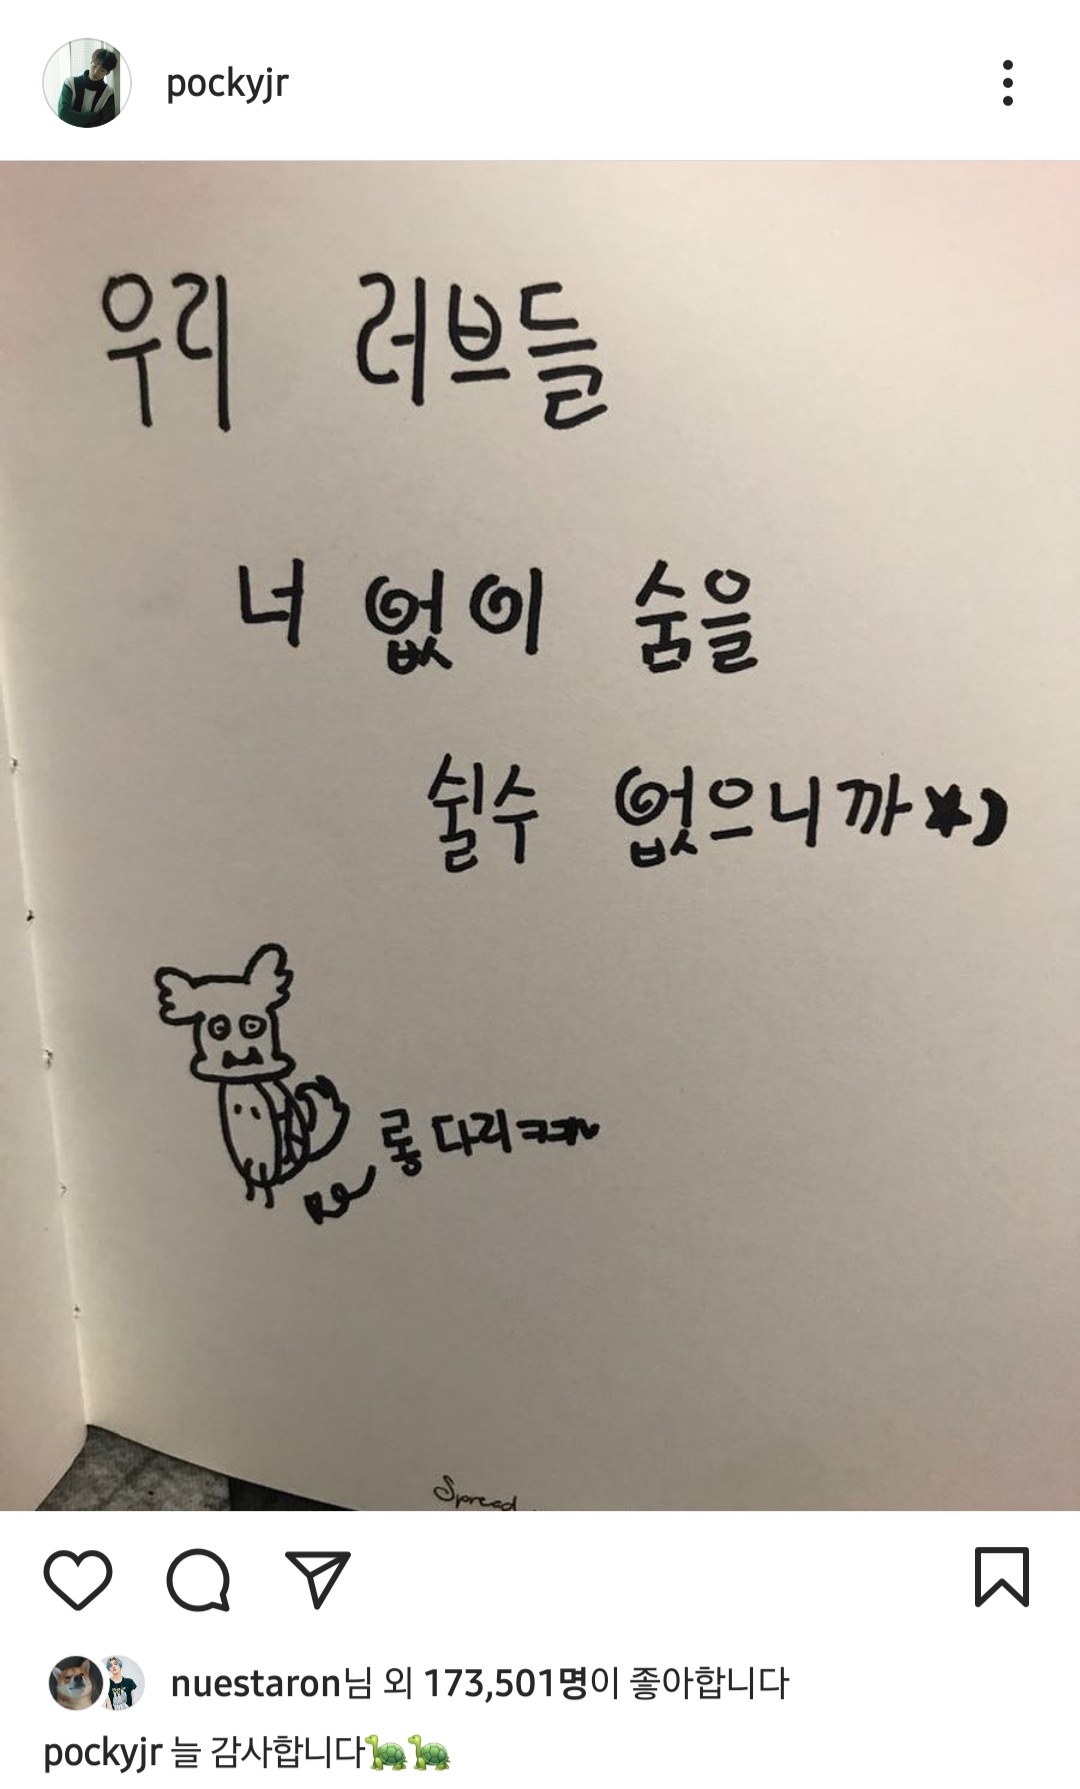 pockyjr
우리 러브들
너 없이 숨을
쉴수 없으니까
롱다리ㅋㅋㅋ
Spread
nuestaron님 외 173,501명이 좋아합니다
pockyjr 늘 감사합니다🐢🐢